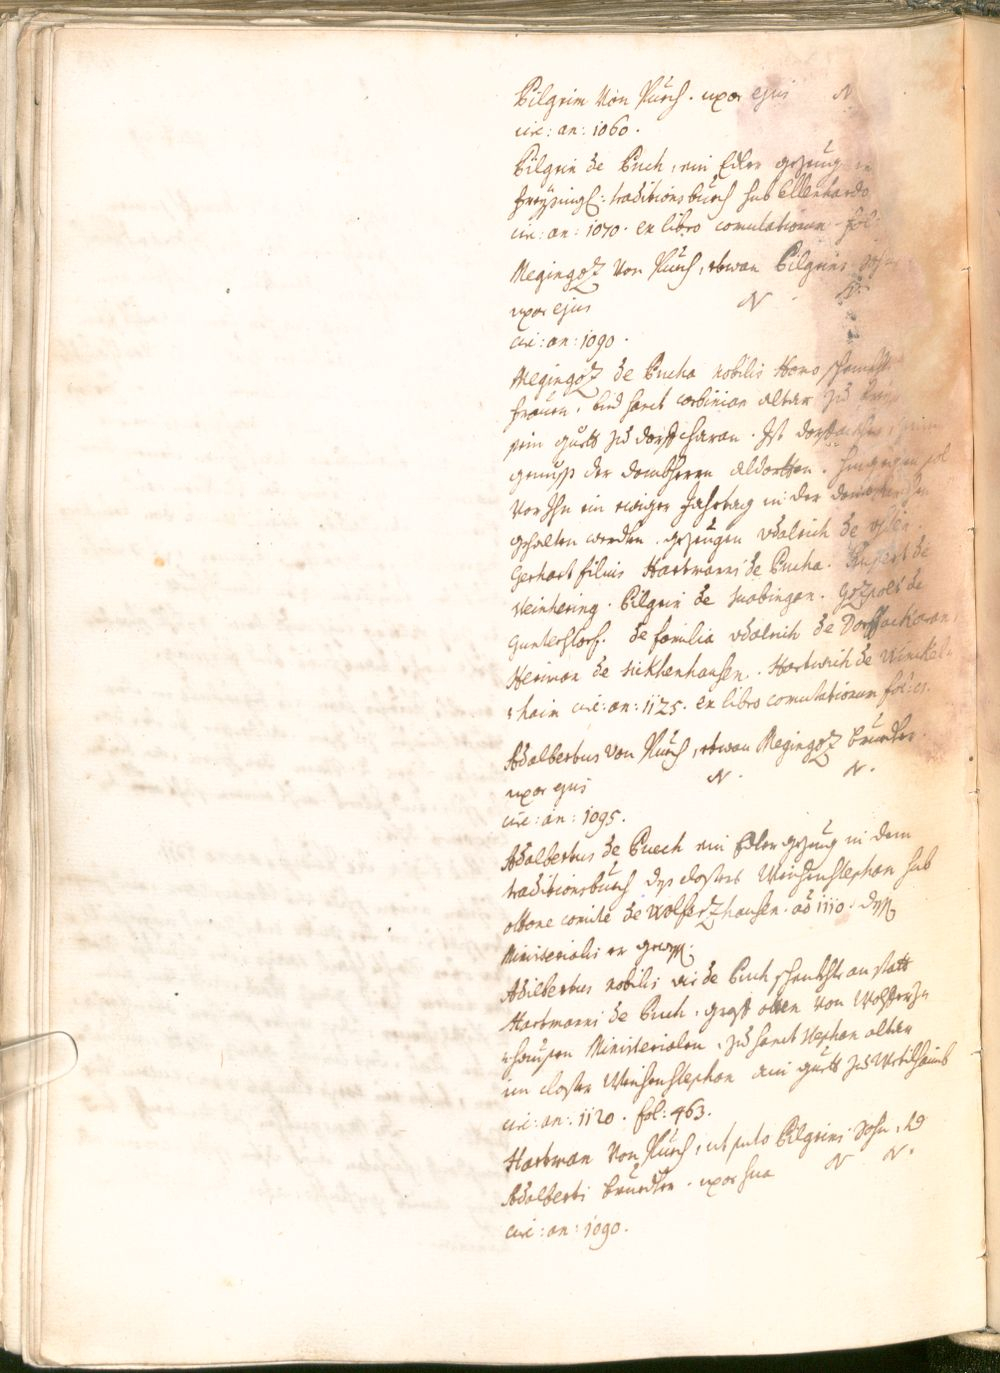 Pilgrim Von Puech . uxor ejus N
circ : an : 1060 .
Pilgrin de Puch , ein Edler gezeug in
freysingl : traditionsbuech sub Ellenhardo
circ : an : 1070 . ex libro comutationum fol :
Megingoz Von Puech , etwan Pilgrins Sohn
uxor ejus N N.
circ : an : 1090 .
Megingoz de Pucha nobilis Homo schenckht
frauen , und sanct corbinian altar zu
sein guett zu dorffacharan . Ist
genuss der dombherrn aldortten .
Vor Ihn ein ewiger Jahrtag in der
gehalten werden . gezeugen Vdalrich de
Gerhart filius Hartmanni de Pucha . Rupert de
Steinhering . Pilgrin de Suabingan . Gozpolt de
Gunterstorf . de familia Vdalrich de Dorffacharan ,
Herman de Sickhenhausen . Hartwich de Winckel-
shaim circ : an : 1125 . ex libro comutationum fol :
Adalbertus von Puech , etwan Megingoz brueder
uxor ejus N . N .
circ : an : 1095 .
Adalbertus de Puech ein Edler gezeug in dem
traditionsbuech des closters Weichenstephan sub
ottone comite de Wolferzhausen . ad 1110 . dess
Ministerialis er gewest .
Adilbertus nobilis vir de Puch schenckht an statt
Hartmanni de Puch , graff otten von Wolfferz-
hausen Ministerialen , zu sanct Stephan altar
im closter Weichenstephan ain guett zu
circ : an : 1120 . fol : 463 .
Hartman Von Puech , ut puto Pilgrini Sohn , et
Adalberti brueder . uxor sua N N .
circ : an : 1090 .